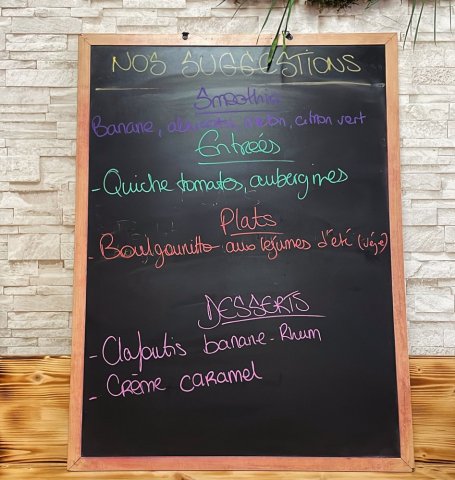 NOS SUGGESTIONS
Smoothie
Banane, abricots, melon, citron vert
Entrées
- Quiche tomates, aubergines
Plats
- Boulgounitto aux légumes d'été (végé)
DESSERTS
- Clafoutis banane-Rhum
- Crème caramel